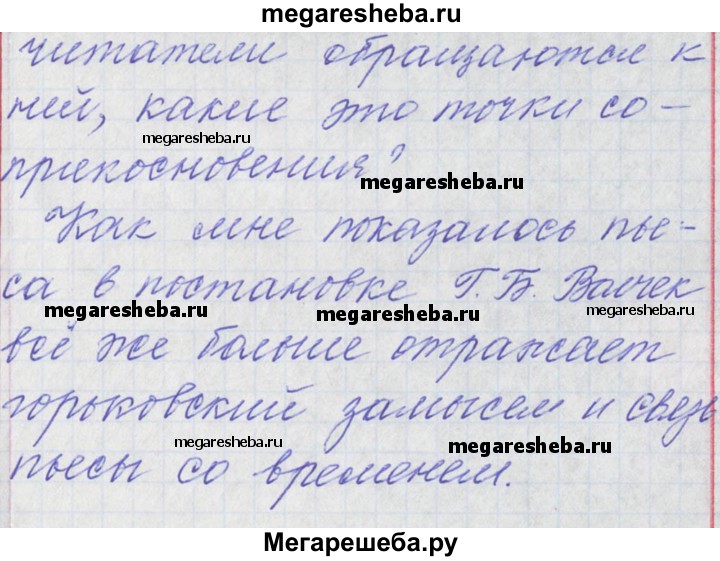 megaresheba.ru
читатели обращаются к
ней, какие это точки со-
megaresheba.ru
прикосновения?
megaresheba.ru
Как мне показалось пье-
са в постановке Г.Б. Волчек
megaresheba.ru
megaresheba.ru
megaresheba.ru
всё же больше отражает
горьковский замысел и связь
megaresheba.ru
megaresheba.ru
пьесы со временем.
Мегарешеба.ру